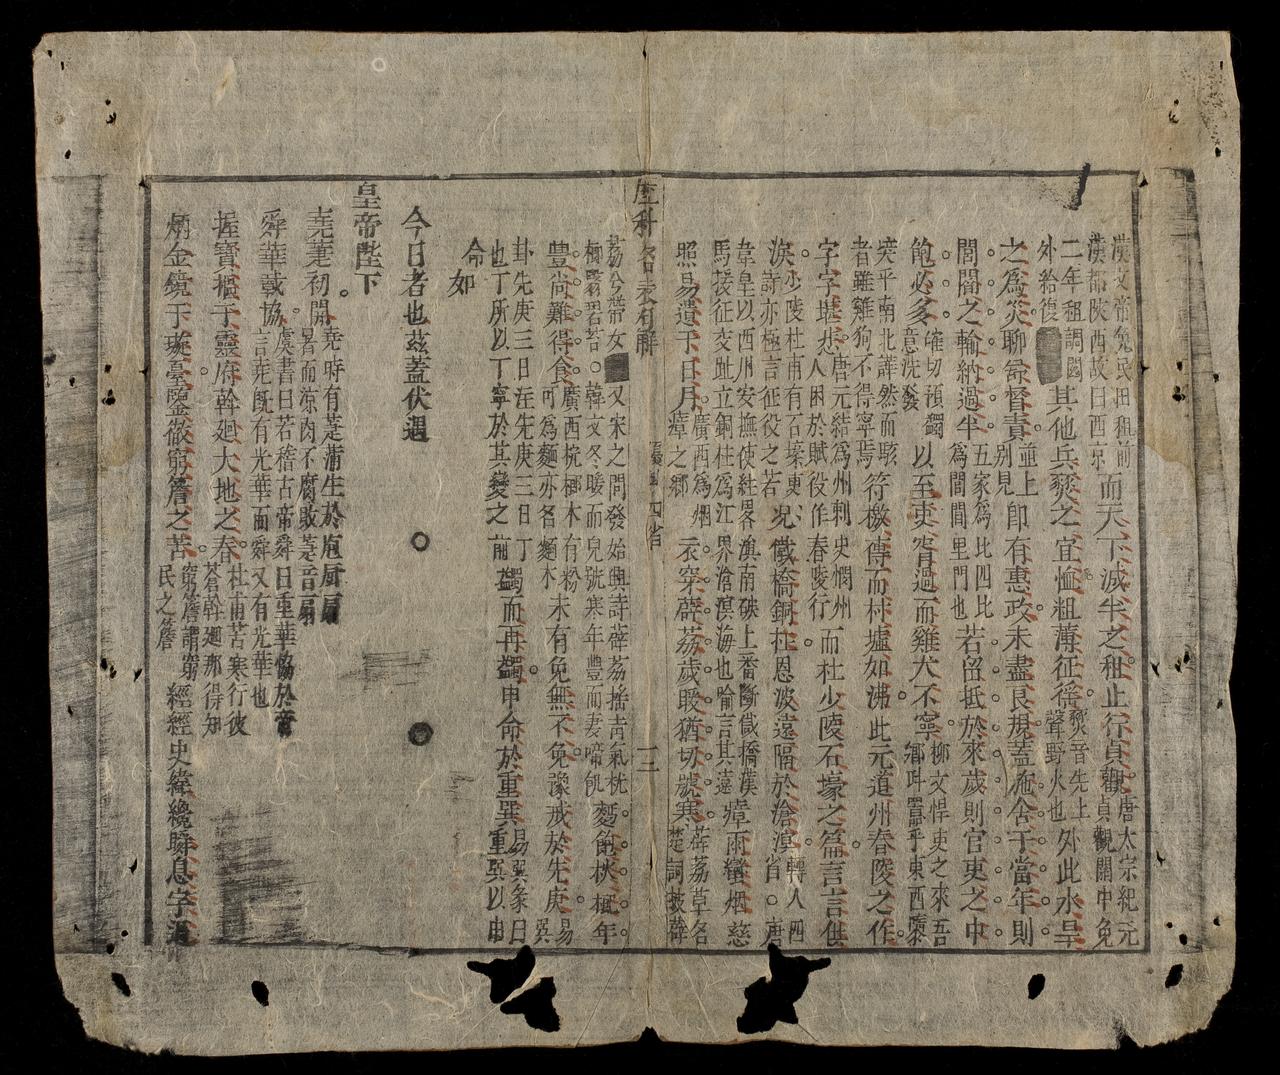 漢文帝免民田租前
漢都陜西故曰西京
而天下減半之租止行貞觀
唐太宗紀元
貞觀關中免
二年租調
外給復
其他兵燹之宜恤粗薄征徭
燹音先上
聲野火也
外此水旱
之爲災聊
督責
並上
別見
即有惠政未盡良規蓋施舍于當年則
閭閻之輸納過半
五家爲比四比
爲閭閭里門也
若留抵於來歲則官吏之中
飽必多
確切預蠲
意洗發
以至吏胥過而雞犬不寧
柳文悍吏之來吾
鄉叫囂乎東西隳
突乎南北譁然而駭
者雖雞狗不得寧焉
符檄傳而村墟如沸此元道州舂陵之作
唐元結爲州刺史憫州
人困於賦役作舂陵行
字字堪悲
而杜少陵石壕之篇言言供
淚
少陵杜甫有石壕吏
詩亦極言征役之苦
况戱橋銅柱恩波遠隔於滄溟
轉入四
省
唐
韋皇以西川安撫使經畧滇南破上番斷戱橋漢
馬援征交趾立銅柱爲江界滄溟海也喻言其遠
瘴雨蠻烟慈
照易遺于日月
廣西爲烟
瘴之鄉
衣穿薜荔歲暖猶切號寒
薜荔草名
楚詞披薜
荔兮帶女
又宋之問發始興詩薜荔搖青氣桄
榔翳碧苔
韓文冬暖而兒號寒年豐而妻啼飢
麫飽桄榔年
豐尚難得食
廣西桄榔木有粉
可爲麵亦名麵木
未有免無不免豫戒於先庚
易
巽
卦先庚三日注先庚三日丁
也丁所以丁寧於其變之前
蠲而再蠲申命於重巽
易巽彖曰
重巽以申
命
如
今日者也茲蓋伏遇
皇帝陛下
堯蓂初開
堯時有蓂莆生於庖厨扇
暑而涼肉不腐敗蓂音扇
舜華載協
虞書曰若稽古帝舜曰重華協於帝
言堯既有光華而舜又有光華也
握寶樞于靈府斡廻大地之春
杜甫苦寒行彼
蒼斡廻那得知
炳金鏡于瑤臺鑒徹窮簷之苦
窮簷謂窮
民之簷
經經史緯纔瞬息字過